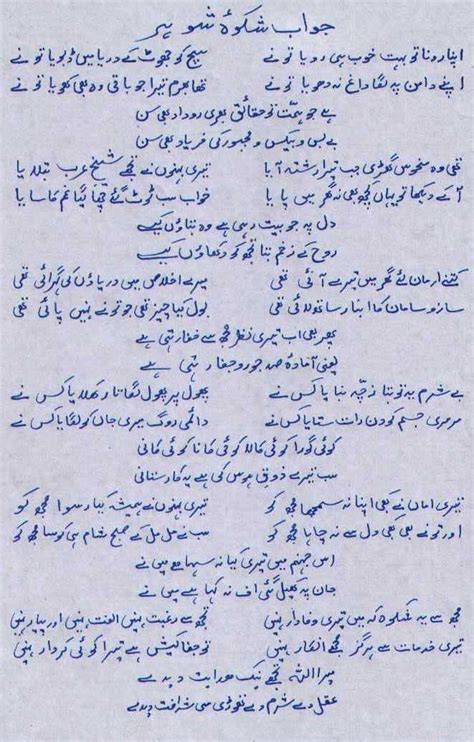 جواب شکوۂ شوہر
اپنا رونا تو بہت خوب ہی رویا تو نے سچ کو جھوٹ کے دریا میں ڈبویا تو نے
اپنے دامن پہ لگا داغ نہ دھویا تو نے تھا بھرم تیرا جو باقی وہ بھی کھویا تو نے
ہے جو ہمت تو حقائق بھری روداد بھی سن
بے بس و بیکس و مجبور کی فریاد بھی سن
تھی وہ منحوس گھڑی جب تیرا رشتہ آیا تیری بہنوں نے تجھے شیخ عرب بتلایا
آ کے دیکھا تو یہاں کچھ بھی نہ گھر میں پایا خواب سب ٹوٹ گئے چھا گیا غم کا سایا
دل پہ جو بیت رہی ہے وہ بتاؤں کیسے
روح کے زخم بتا تجھ کو دکھاؤں کیسے
کتنے ارمان لئے گھر میں تیرے آئی تھی میرے اخلاص میں دریاؤں کی گہرائی تھی
سازو سامان کا انبار ساتھ لائی تھی بول کیا چیز تھی جو تو نے نہیں پائی تھی
پھر بھی اب تیری نظر مجھ سے خفا رہتی ہے
یعنی آمادۂ صد جور و جفا رہتی ہے
بے شرم یہ تو بتا زچہ بنایا کس نے پھول پر پھول لگاتار کھلایا کس نے
مرمری جسم کو دن رات ستایا کس نے دائمی روگ میری جان کو لگایا کس نے
کوئی گورا کوئی کالا کوئی کانا کوئی کانی
سب تیرے ذوق ہوس کی ہے یہ کارستانی
تیری اماں نے کبھی اپنا نہ سمجھا مجھ کو تیری بہنوں نے ہمیشہ کیا رسوا مجھ کو
اور تو نے بھی کبھی دل سے نہ چاہا مجھ کو سب نے مل مل کے صبح شام ہی کوسا مجھ کو
اس جہنم میں تیری کیا نہ سہا ہے میں نے
جان پہ کھیل گئی اف نہ کہا ہے میں نے
مجھ سے یہ شکوہ کہ میں تیری وفادار نہیں تجھ سے رغبت نہیں الفت نہیں اور پیار نہیں
تیری خدمات سے ہرگز مجھے انکار نہیں تو جفا کیش ہے تیرا کوئی کردار نہیں
میرا اللہ تجھے نیک ہدایت دیدے
عقل دے شرم دے تھوڑی سی شرافت دیدے